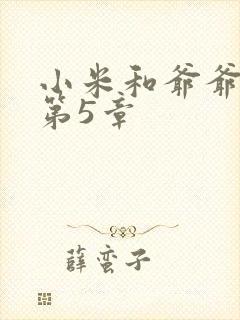 小米和爷爷
第5章
薛蛮子